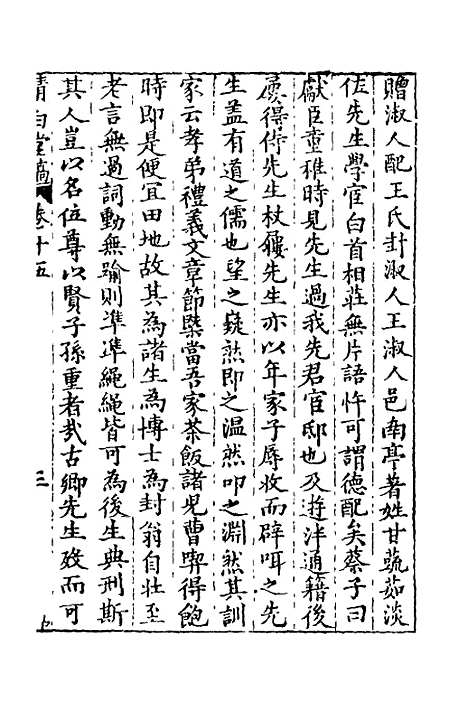 贈淑人配王氏封淑人王淑人邑南亭著姓甘蔬茹淡
佐先生學宦白首相莊無片語忤可謂德配矣蔡子曰
獻臣童稚時見先生過我先君官邸也及遊泮通籍後
屡得侍先生杖屨先生亦以年家子辱收而辟咡之先
生盖有道之儒也望之嶷然即之温然叩之淵然其訓
家云孝弟禮義文章節槩當吾家茶飯諸兒曹喫得飽
時即是便冝田地故其為諸生為博士為封翁自壯至
老言無過詞動無踰則凖凖繩繩皆可為後生典刑斯
其人豈以名位尊以賢子孫重者㢤古卿先生殁而可
清白堂藳 卷十五 三